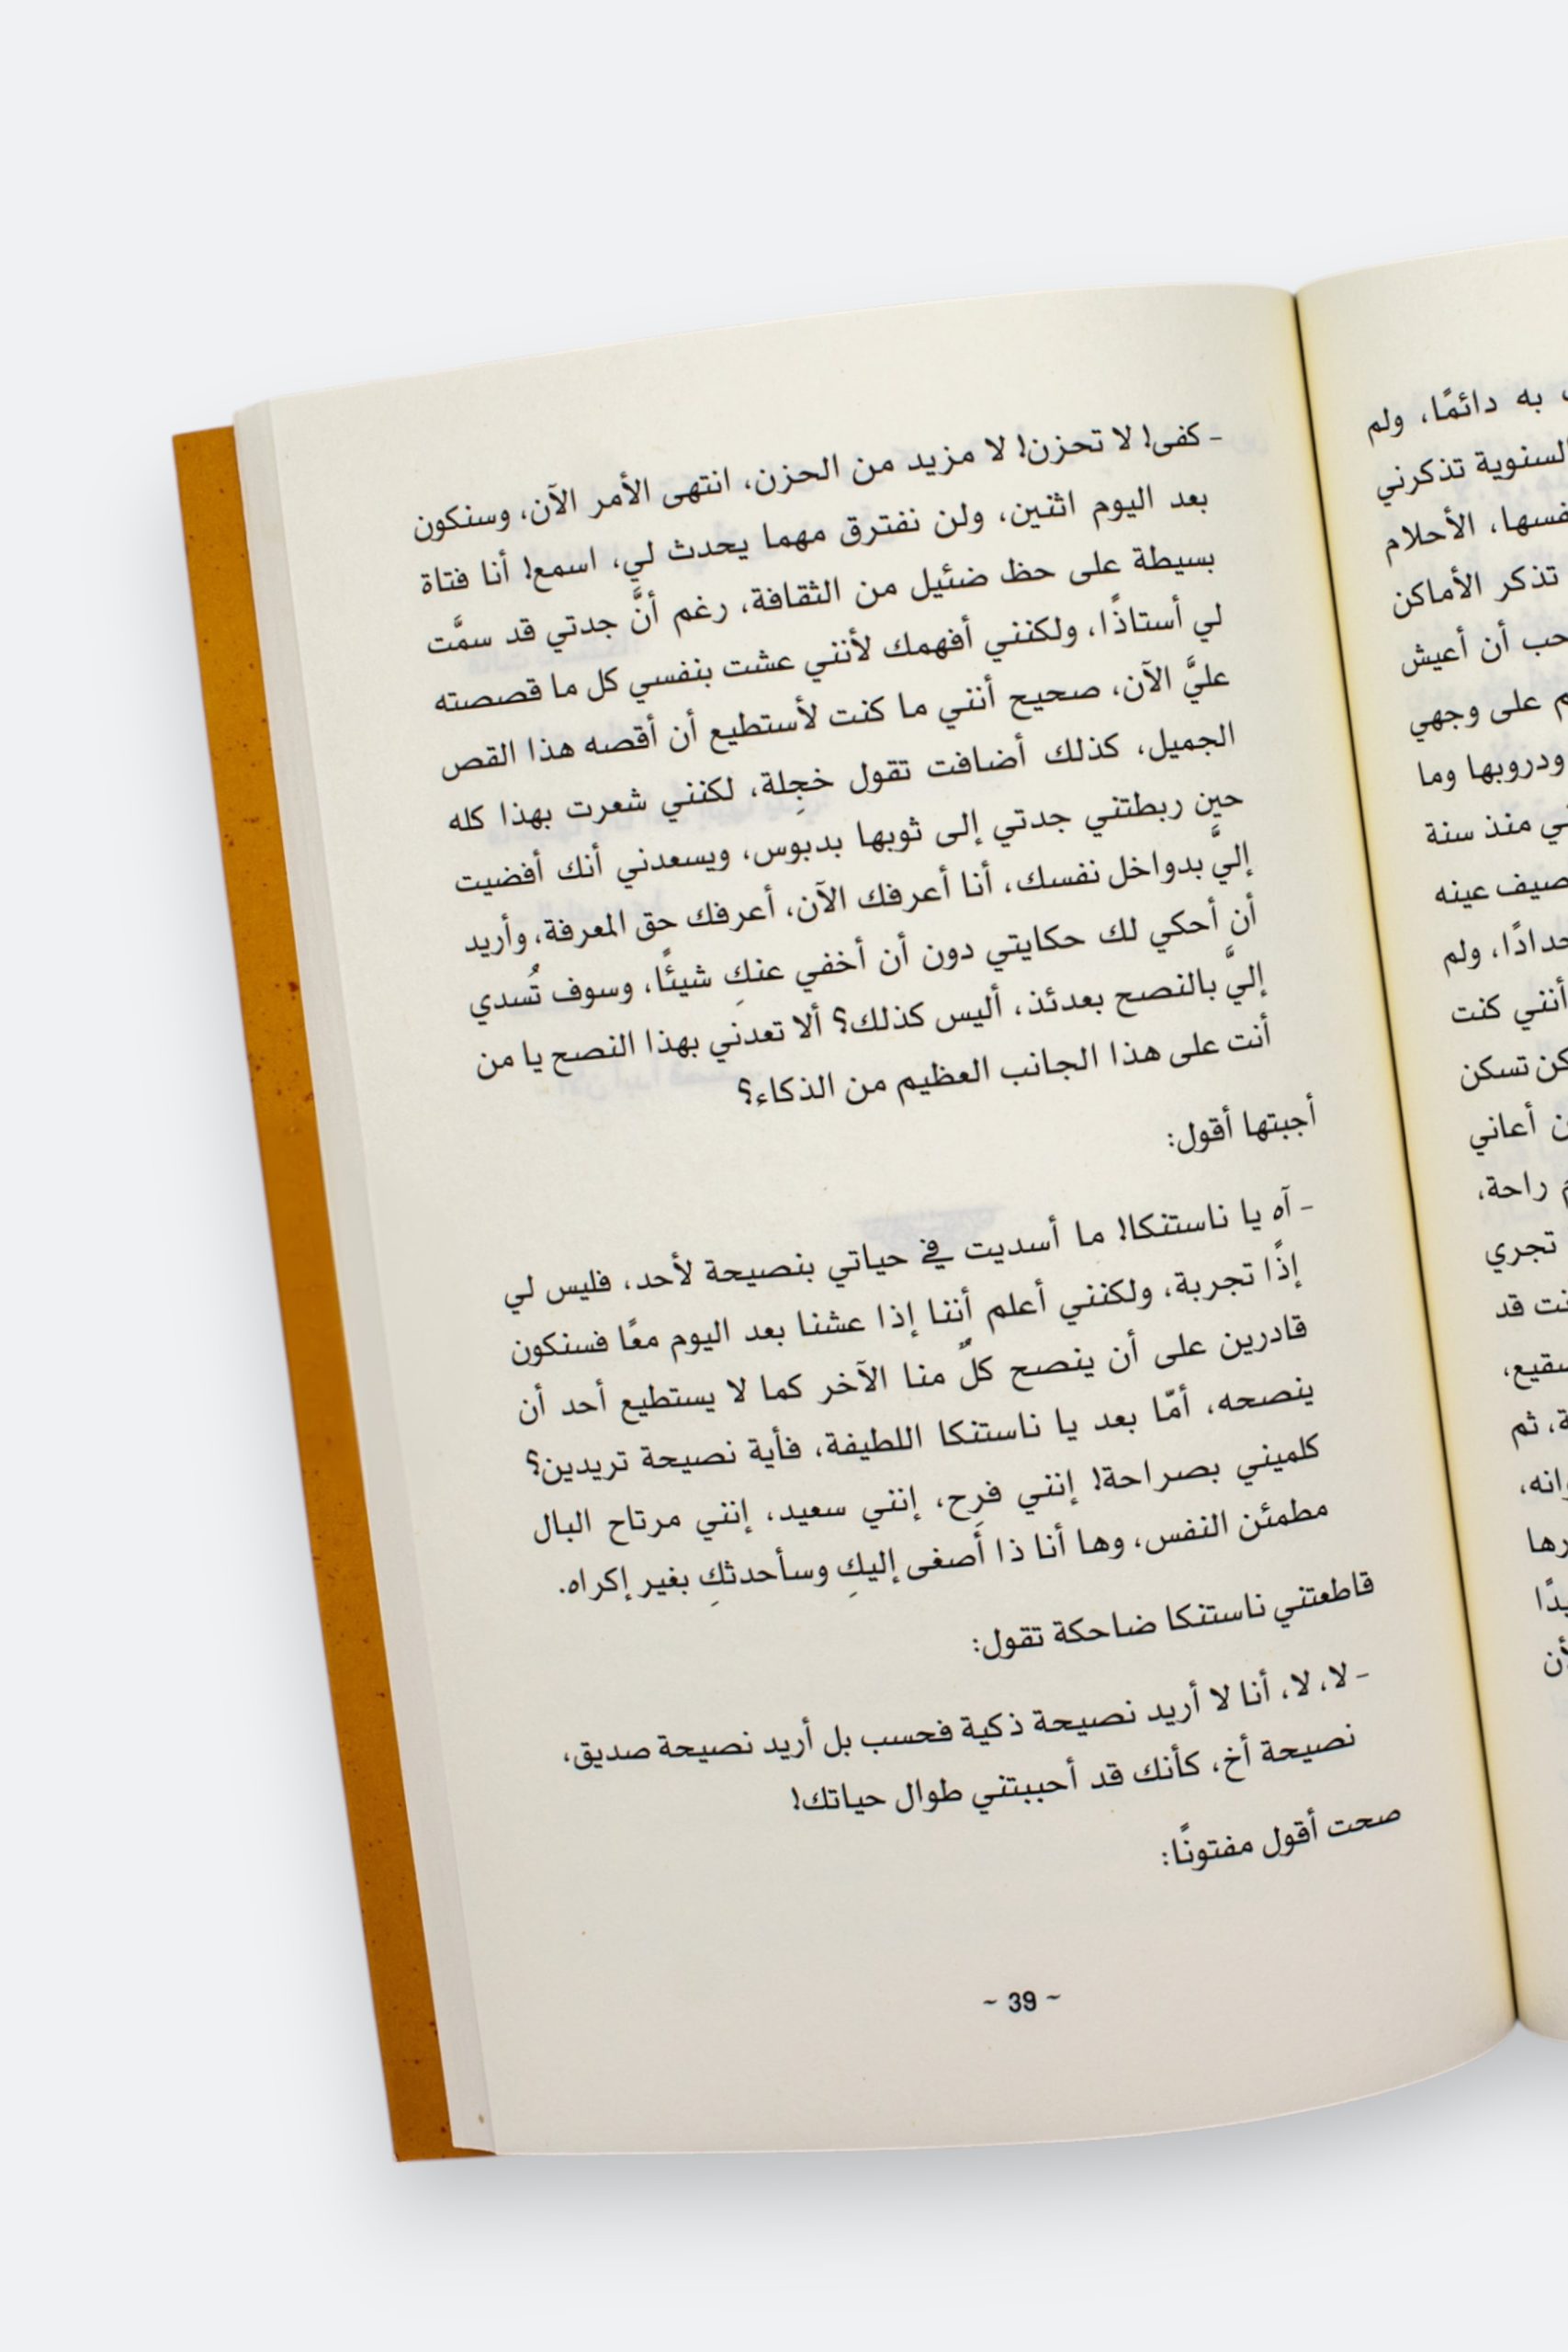 - كفى! لا تحزن! لا مزيد من الحزن، انتهى الأمر الآن، وسنكون
بعد اليوم اثنين، ولن نفترق مهما يحدث لي، اسمع! أنا فتاة
بسيطة على حظ ضئيل من الثقافة، رغم أنَّ جدتي قد سمَّت
لي أستاذًا، ولكنني أفهمك لأنني عشت بنفسي كل ما قصصته
عليَّ الآن، صحيح أنني ما كنت لأستطيع أن أقصه هذا القص
الجميل، كذلك أضافت تقول خجِلة، لكنني شعرت بهذا كله
حين ربطتني جدتي إلى ثوبها بدبوس، ويسعدني أنك أفضيت
إليَّ بدواخل نفسك، أنا أعرفك الآن، أعرفك حق المعرفة، وأريد
أن أحكي لك حكايتي دون أن أخفي عنكِ شيئًا، وسوف تُسدي
إليَّ بالنصح بعدئذ، أليس كذلك؟ ألا تعدني بهذا النصح يا من
أنت على هذا الجانب العظيم من الذكاء؟
أجبتها أقول:
- آه يا ناستنكا! ما أسديت في حياتي بنصيحة لأحد، فليس لي
إذًا تجربة، ولكنني أعلم أننا إذا عشنا بعد اليوم معًا فسنكون
قادرين على أن ينصح كلٌ منا الآخر كما لا يستطيع أحد أن
ينصحه، أمّا بعد يا ناستنكا اللطيفة، فأية نصيحة تريدين؟
كلميني بصراحة! إنني فرِح، إنني سعيد، إنني مرتاح البال
مطمئن النفس، وها أنا ذا أصغى إليكِ وسأحدثكِ بغير إكراه.
قاطعتني ناستنكا ضاحكة تقول:
- لا، لا، أنا لا أريد نصيحة ذكية فحسب بل أريد نصيحة صديق،
نصيحة أخ، كأنك قد أحببتني طوال حياتك!
صحت أقول مفتونًا:
~ 39 ~
به دائمًا، ولم
السنوية تذكرني
الأحلام
تذكر الأماكن
أن أعيش
على وجهي
ودروبها وما
منذ سنة
عينه
ولم
أنني كنت
تسكن
أعاني
راحة،
تجري
قد
ثم